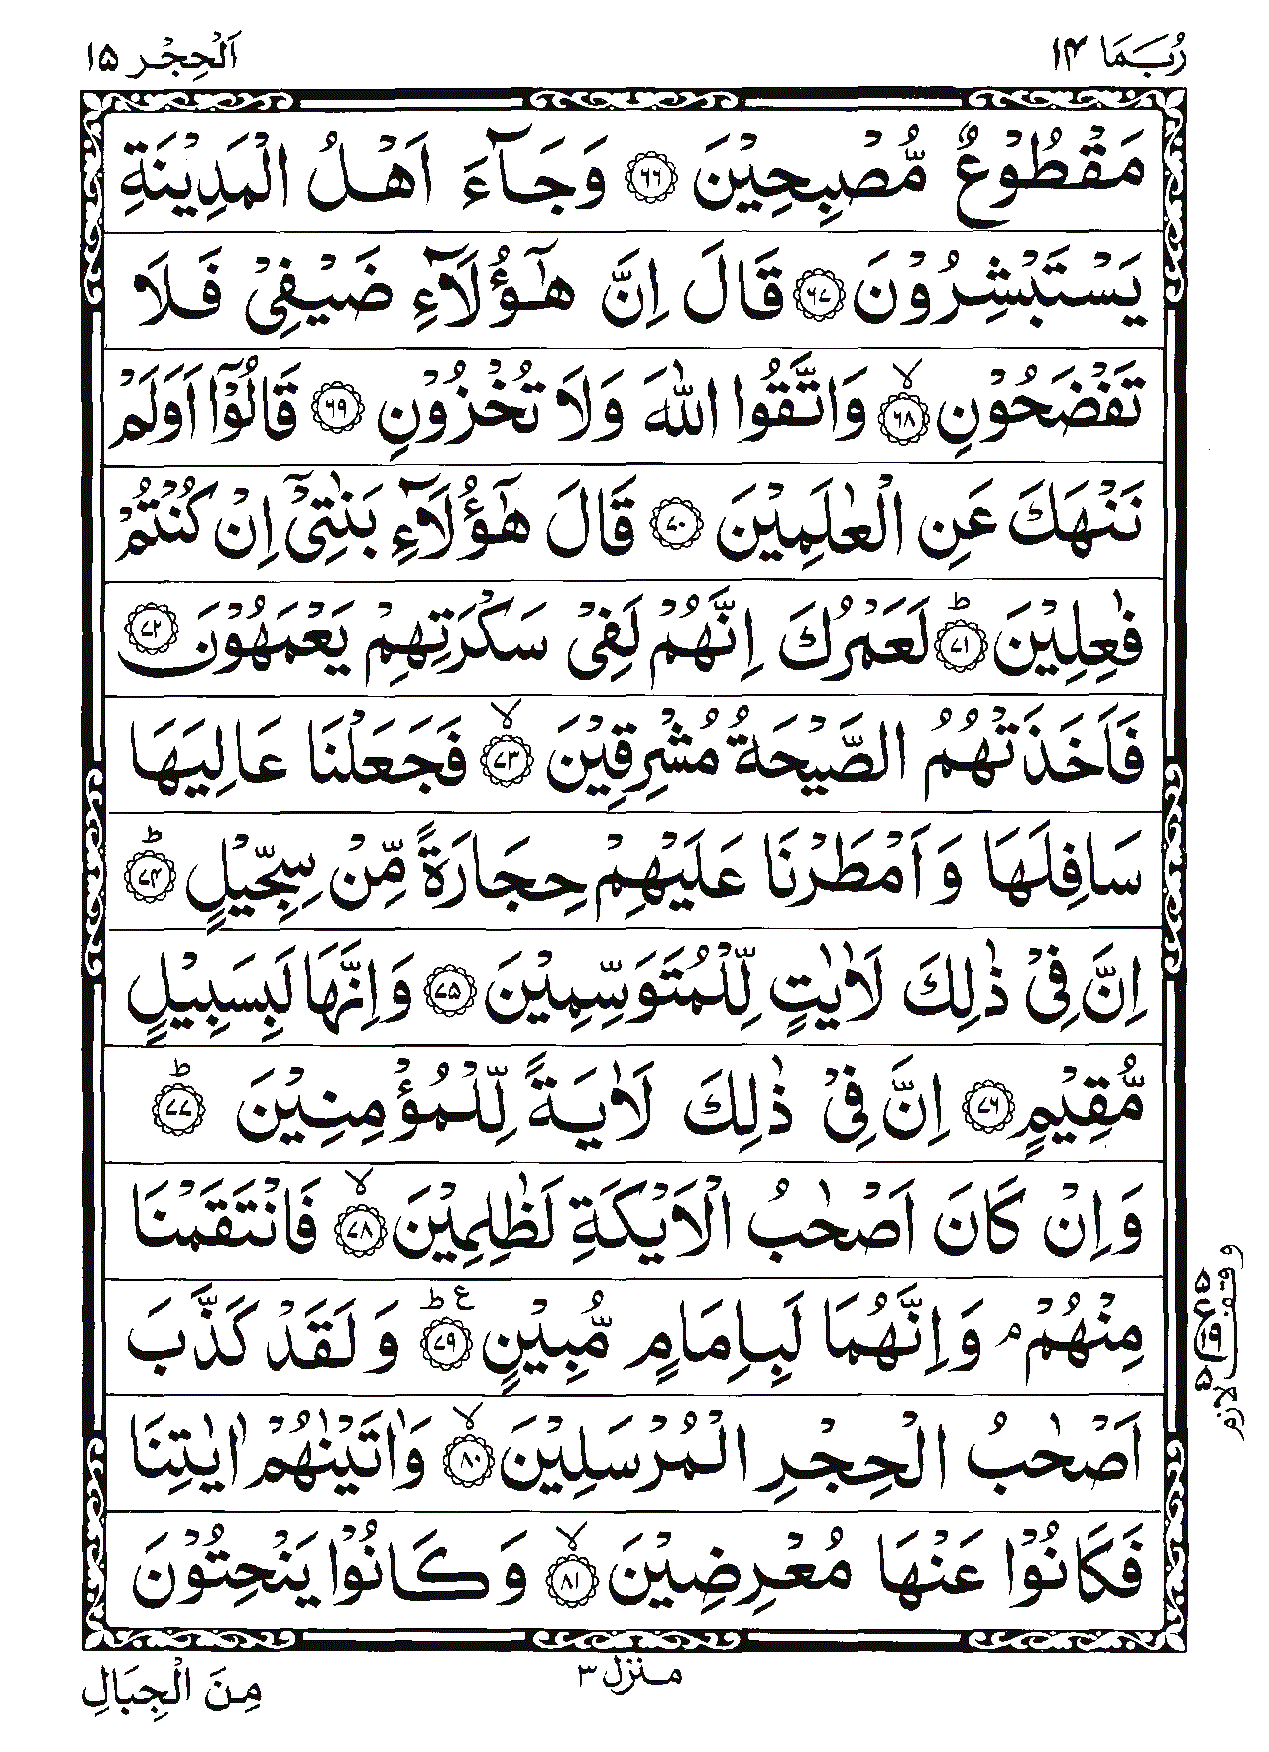 رُبَمَا ۱۴
اَلْحِجْر ۱۵
مَقْطُوْعٌ مُّصْبِحِيْنَ ۶۶ وَجَآءَ اَهْلُ الْمَدِيْنَةِ
يَسْتَبْشِرُوْنَ ۶۷ قَالَ اِنَّ هٰٓؤُلَآءِ ضَيْفِيْ فَلَا
تَفْضَحُوْنِ ۶۸ۙ وَاتَّقُوا اللّٰهَ وَلَا تُخْزُوْنِ ۶۹ قَالُوْٓا اَوَلَمْ
نَنْهَكَ عَنِ الْعٰلَمِيْنَ ۷۰ قَالَ هٰٓؤُلَآءِ بَنٰتِيْٓ اِنْ كُنْتُمْ
فٰعِلِيْنَ ۷۱ؕ لَعَمْرُكَ اِنَّهُمْ لَفِيْ سَكْرَتِهِمْ يَعْمَهُوْنَ ۷۲
فَاَخَذَتْهُمُ الصَّيْحَةُ مُشْرِقِيْنَ ۷۳ۙ فَجَعَلْنَا عَالِيَهَا
سَافِلَهَا وَاَمْطَرْنَا عَلَيْهِمْ حِجَارَةً مِّنْ سِجِّيْلٍ ۷۴ؕ
اِنَّ فِيْ ذٰلِكَ لَاٰيٰتٍ لِّلْمُتَوَسِّمِيْنَ ۷۵ وَاِنَّهَا لَبِسَبِيْلٍ
مُّقِيْمٍ ۷۶ اِنَّ فِيْ ذٰلِكَ لَاٰيَةً لِّلْمُؤْمِنِيْنَ ۷۷ؕ
وَاِنْ كَانَ اَصْحٰبُ الْاَيْكَةِ لَظٰلِمِيْنَ ۷۸ۙ فَانْتَقَمْنَا
مِنْهُمْ ۘ وَاِنَّهُمَا لَبِاِمَامٍ مُّبِيْنٍ ۷۹ؕ ع وَلَقَدْ كَذَّبَ
اَصْحٰبُ الْحِجْرِ الْمُرْسَلِيْنَ ۸۰ۙ وَاٰتَيْنٰهُمْ اٰيٰتِنَا
فَكَانُوْا عَنْهَا مُعْرِضِيْنَ ۸۱ۙ وَكَانُوْا يَنْحِتُوْنَ
وقف لازم
۵ ع ۱۹ ۵
منزل ۳
مِنَ الْجِبَالِ